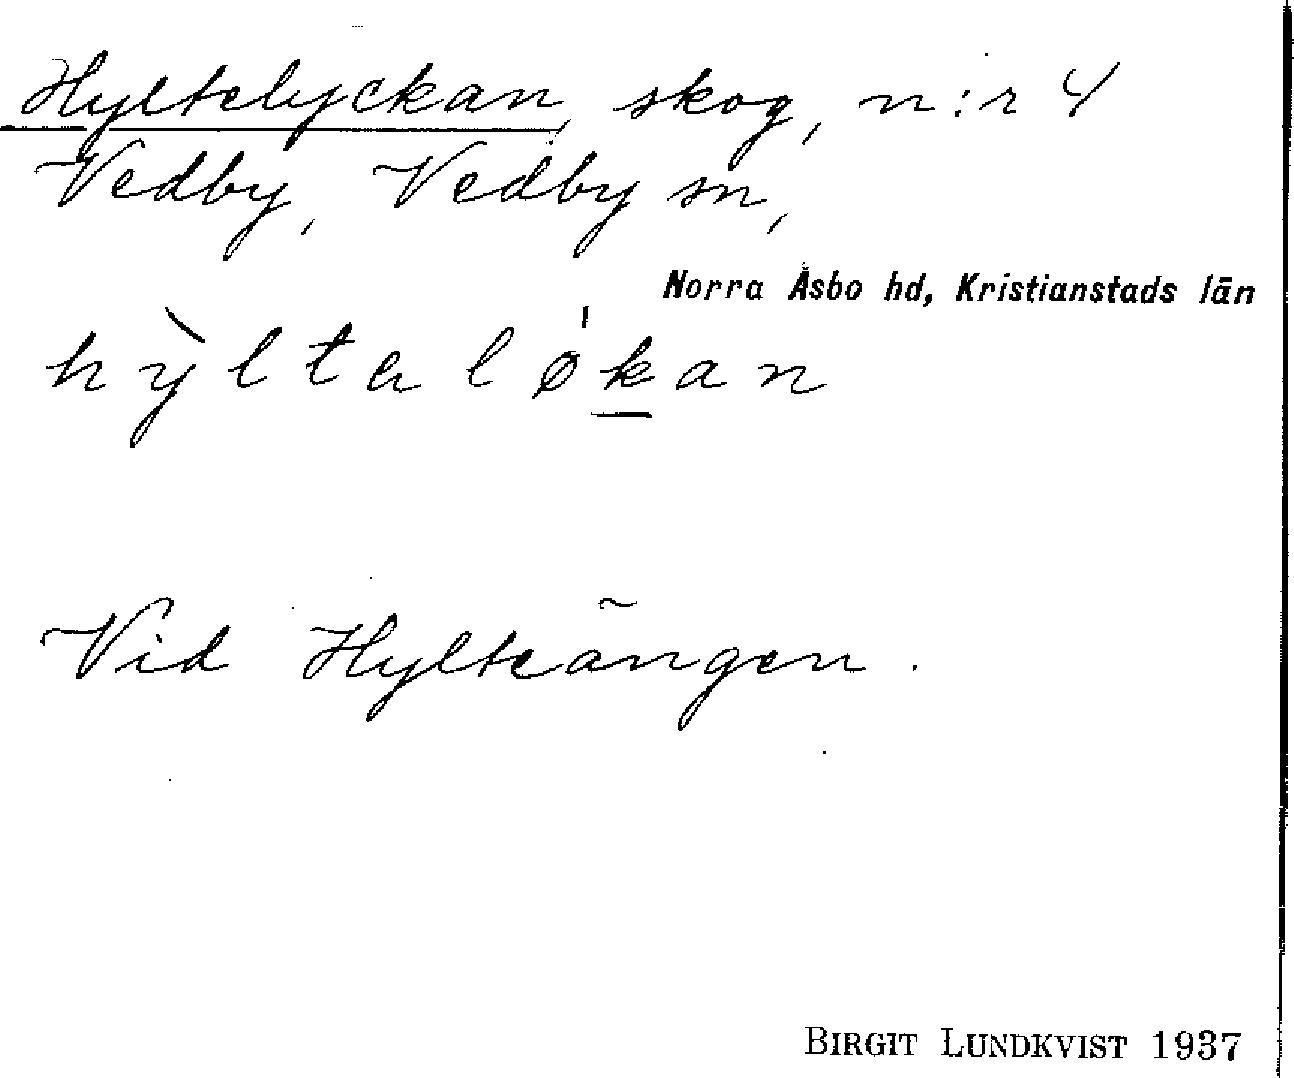 Hyltelyckan, skog, n:r 4
Vedby, Vedby sn,
Norra Åsbo hd, Kristianstads län
hy�iltaløkan
Vid Hylteängen.
BIRGIT LUNDKVIST 1937